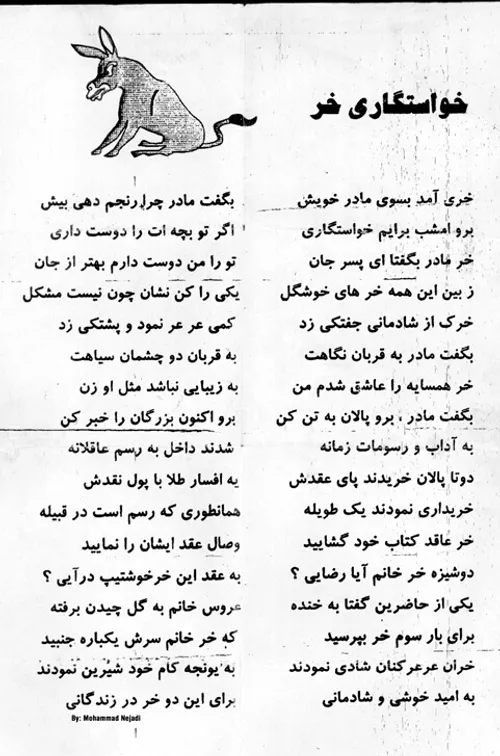 خواستگاری خر
خری آمد بسوی مادر خویش بگفت مادر چرا رنجم دهی بیش
برو امشب برایم خواستگاری اگر تو بچه ات را دوست داری
خر مادر بگفتا ای پسر جان تو را من دوست دارم بهتر از جان
ز بین این همه خر های خوشگل یکی را کن نشان چون نیست مشکل
خرک از شادمانی جفتکی زد کمی عر عر نمود و پشتکی زد
بگفت مادر به قربان نگاهت به قربان دو چشمان سیاهت
خر همسایه را عاشق شدم من به زیبایی نباشد مثل او زن
بگفت مادر ، برو پالان به تن کن برو اکنون بزرگان را خبر کن
به آداب و رسومات زمانه شدند داخل به رسم عاقلانه
دوتا پالان خریدند پای عقدش به افسار طلا با پول نقدش
خریداری نمودند یک طویله همانطوری که رسم است در قبیله
خر عاقد کتاب خود گشایید وصال عقد ایشان را نمایید
دوشیزه خر خانم آیا رضایی ؟ به عقد این خرخوشتیپ درآیی ؟
یکی از حاضرین گفتا به خنده عروس خانم به گل چیدن برفته
برای بار سوم خر بپرسید که خر خانم سرش یکباره جنبید
خران عرعرکنان شادی نمودند به یونجه کام خود شیرین نمودند
به امید خوشی و شادمانی برای این دو خر در زندگانی
By: Mohammad Nejadi